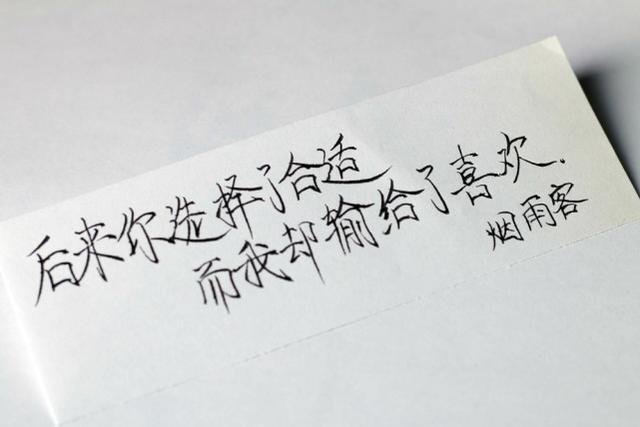 后来你选择了合适
而我却输给了喜欢.
烟雨客